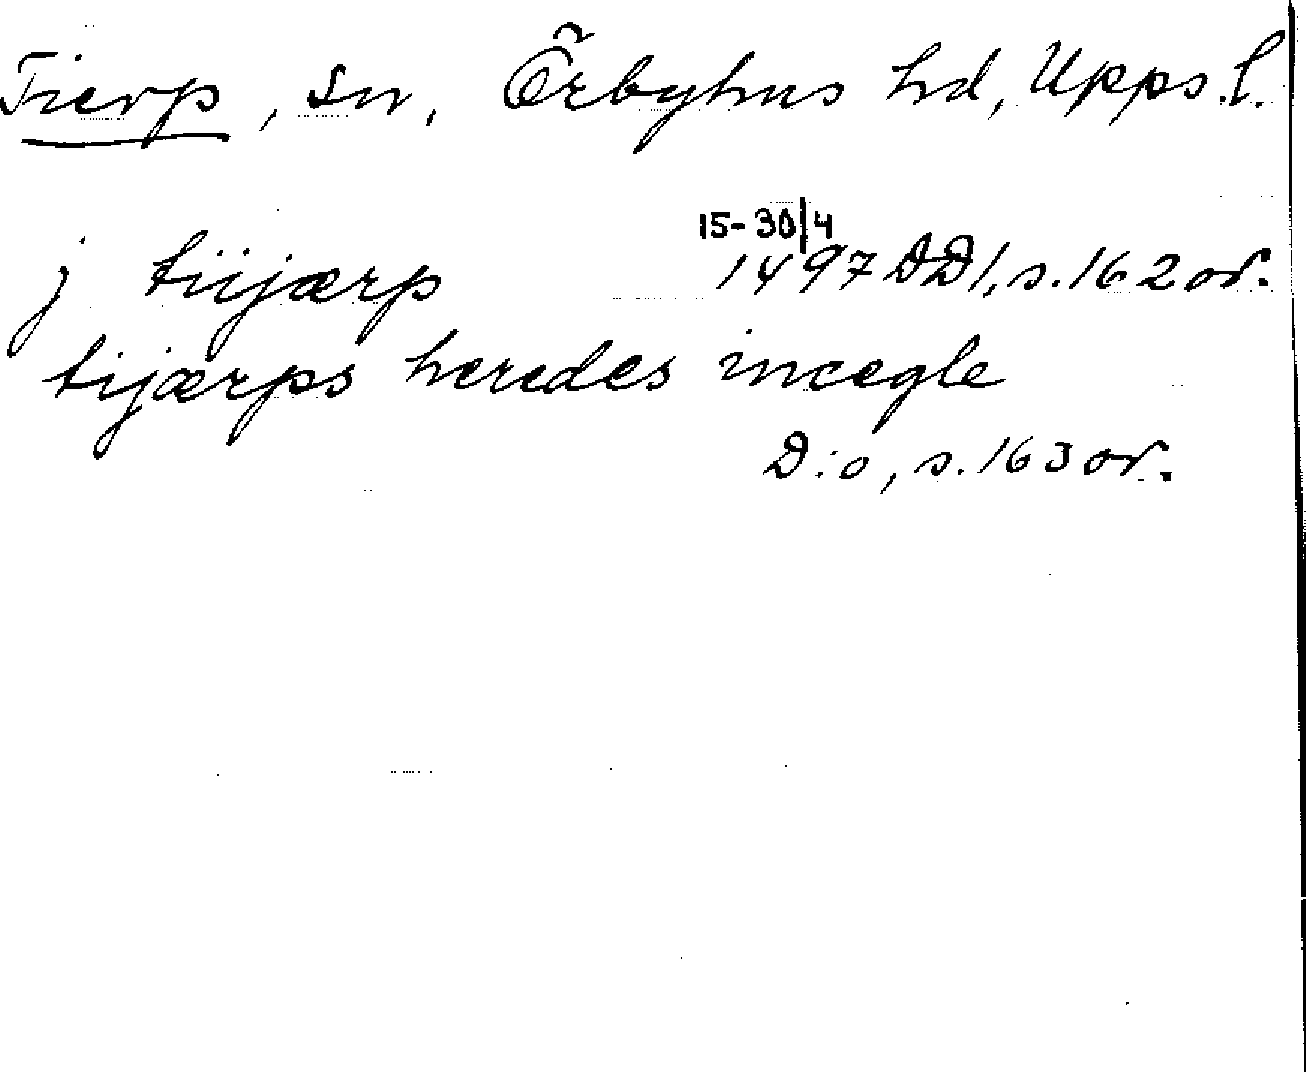 Tierp, sn, Örbyhus hd, Upps. l.
15-30/4
j tiijærp 1497 DD1, s. 162 or.
tijærps heredes incegle
D:o, s. 163 or.